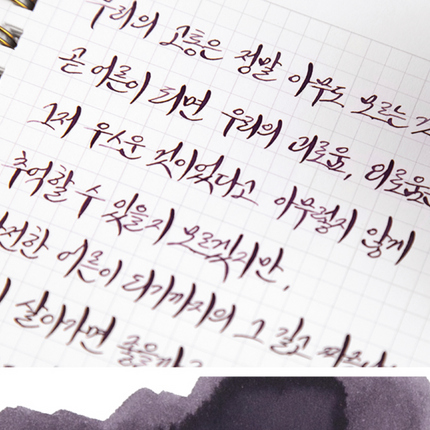 우리의 고통은 정말 아무도 모르는
곧 어른이 되면 우리의 괴로움, 외로움은
그저 우스운 것이었다고 아무렇지 않게
추억할 수 있을지 모르겠지만,
어른이 되기까지의 그 길고
살아가면 좋을까